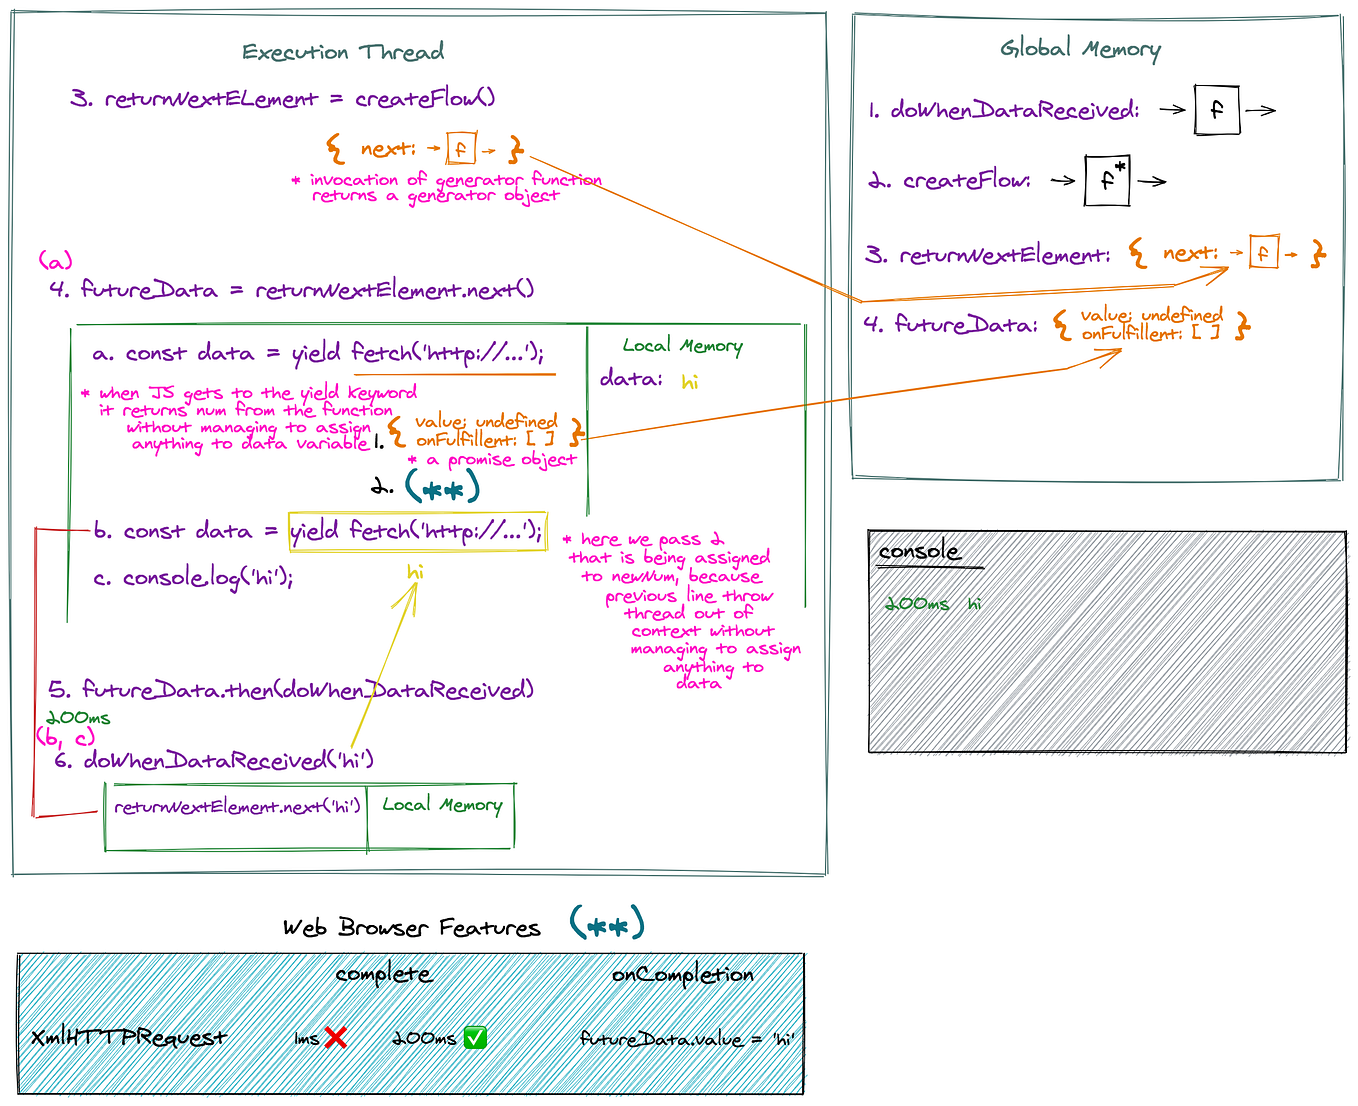 Execution Thread
3. returnNextELement = createFlow()
{ next: → f → }
* invocation of generator function
returns a generator object
(a)
4. futureData = returnNextElement.next()
a. const data = yield fetch('http://...');
* when JS gets to the yield keyword
it returns num from the function
without managing to assign
anything to data variable
1. { value; undefined
onFulfillent: [ ] }
* a promise object
2. (**)
Local Memory
data: hi
b. const data = yield fetch('http://...');
c. console.log('hi');
hi
* here we pass 2
that is being assigned
to newNum, because
previous line throw
thread out of
context without
managing to assign
anything to
data
5. futureData.then(doWhenDataReceived)
200ms
(b, c)
6. doWhenDataReceived('hi')
returnNextElement.next('hi')
Local Memory
Global Memory
1. doWhenDataReceived: → f →
2. createFlow: → f* →
3. returnNextElement: { next: → f → }
4. futureData: { value; undefined
onFulfillent: [ ] }
console
200ms hi
Web Browser Features (**)
complete onCompletion
XmlHTTPRequest 1ms ❌ 200ms ✅ futureData.value = 'hi'